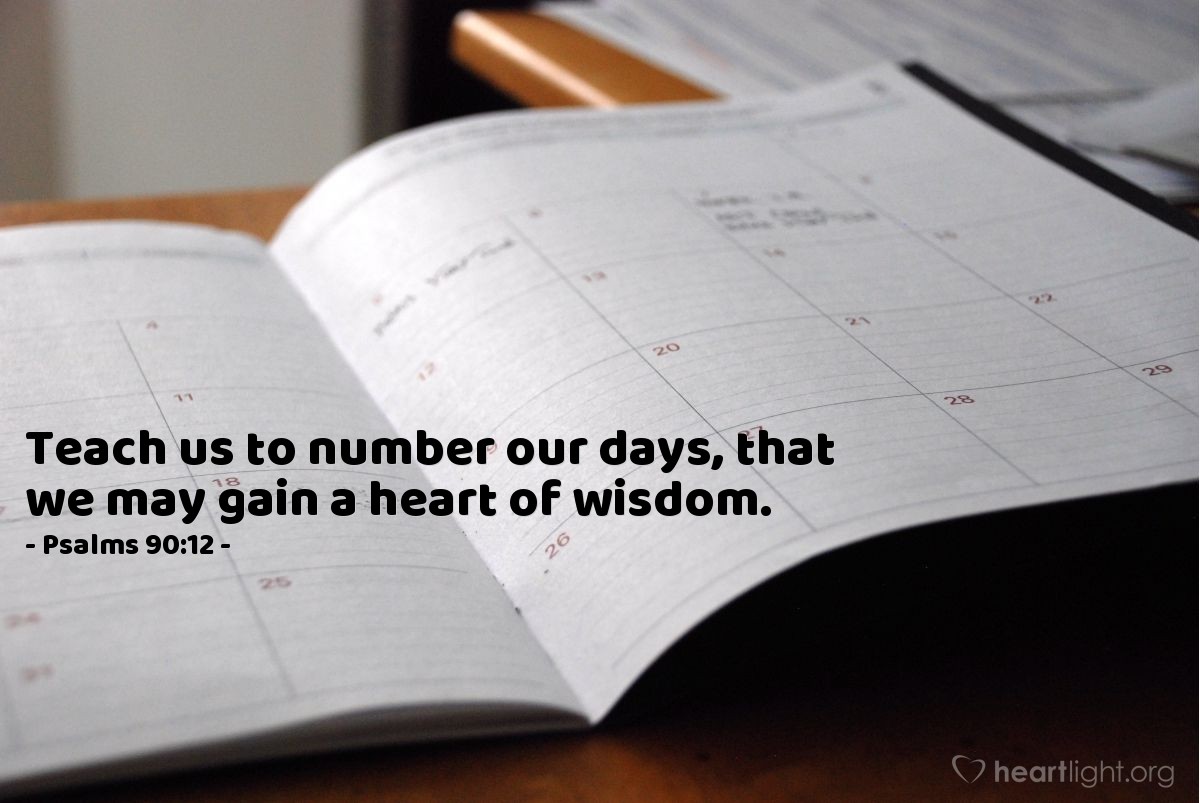 Teach us to number our days, that
we may gain a heart of wisdom.
- Psalms 90:12 -
4
11
18
24
25
31
12
13
14
15
20
21
22
26
27
28
29
heartlight.org